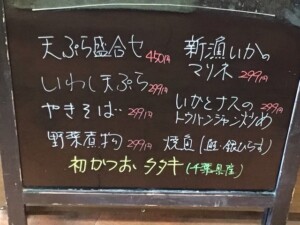 天ぷら盛合セ 450円
いわし天ぷら 299円
やきそば‥ 299円
野菜煮物 299円
新漁いかの
マリネ 299円
いかとナスの 299円
トウバンジャン炒め
焼魚(鮭・銀ひらす)
初かつおタタキ(千葉県産)